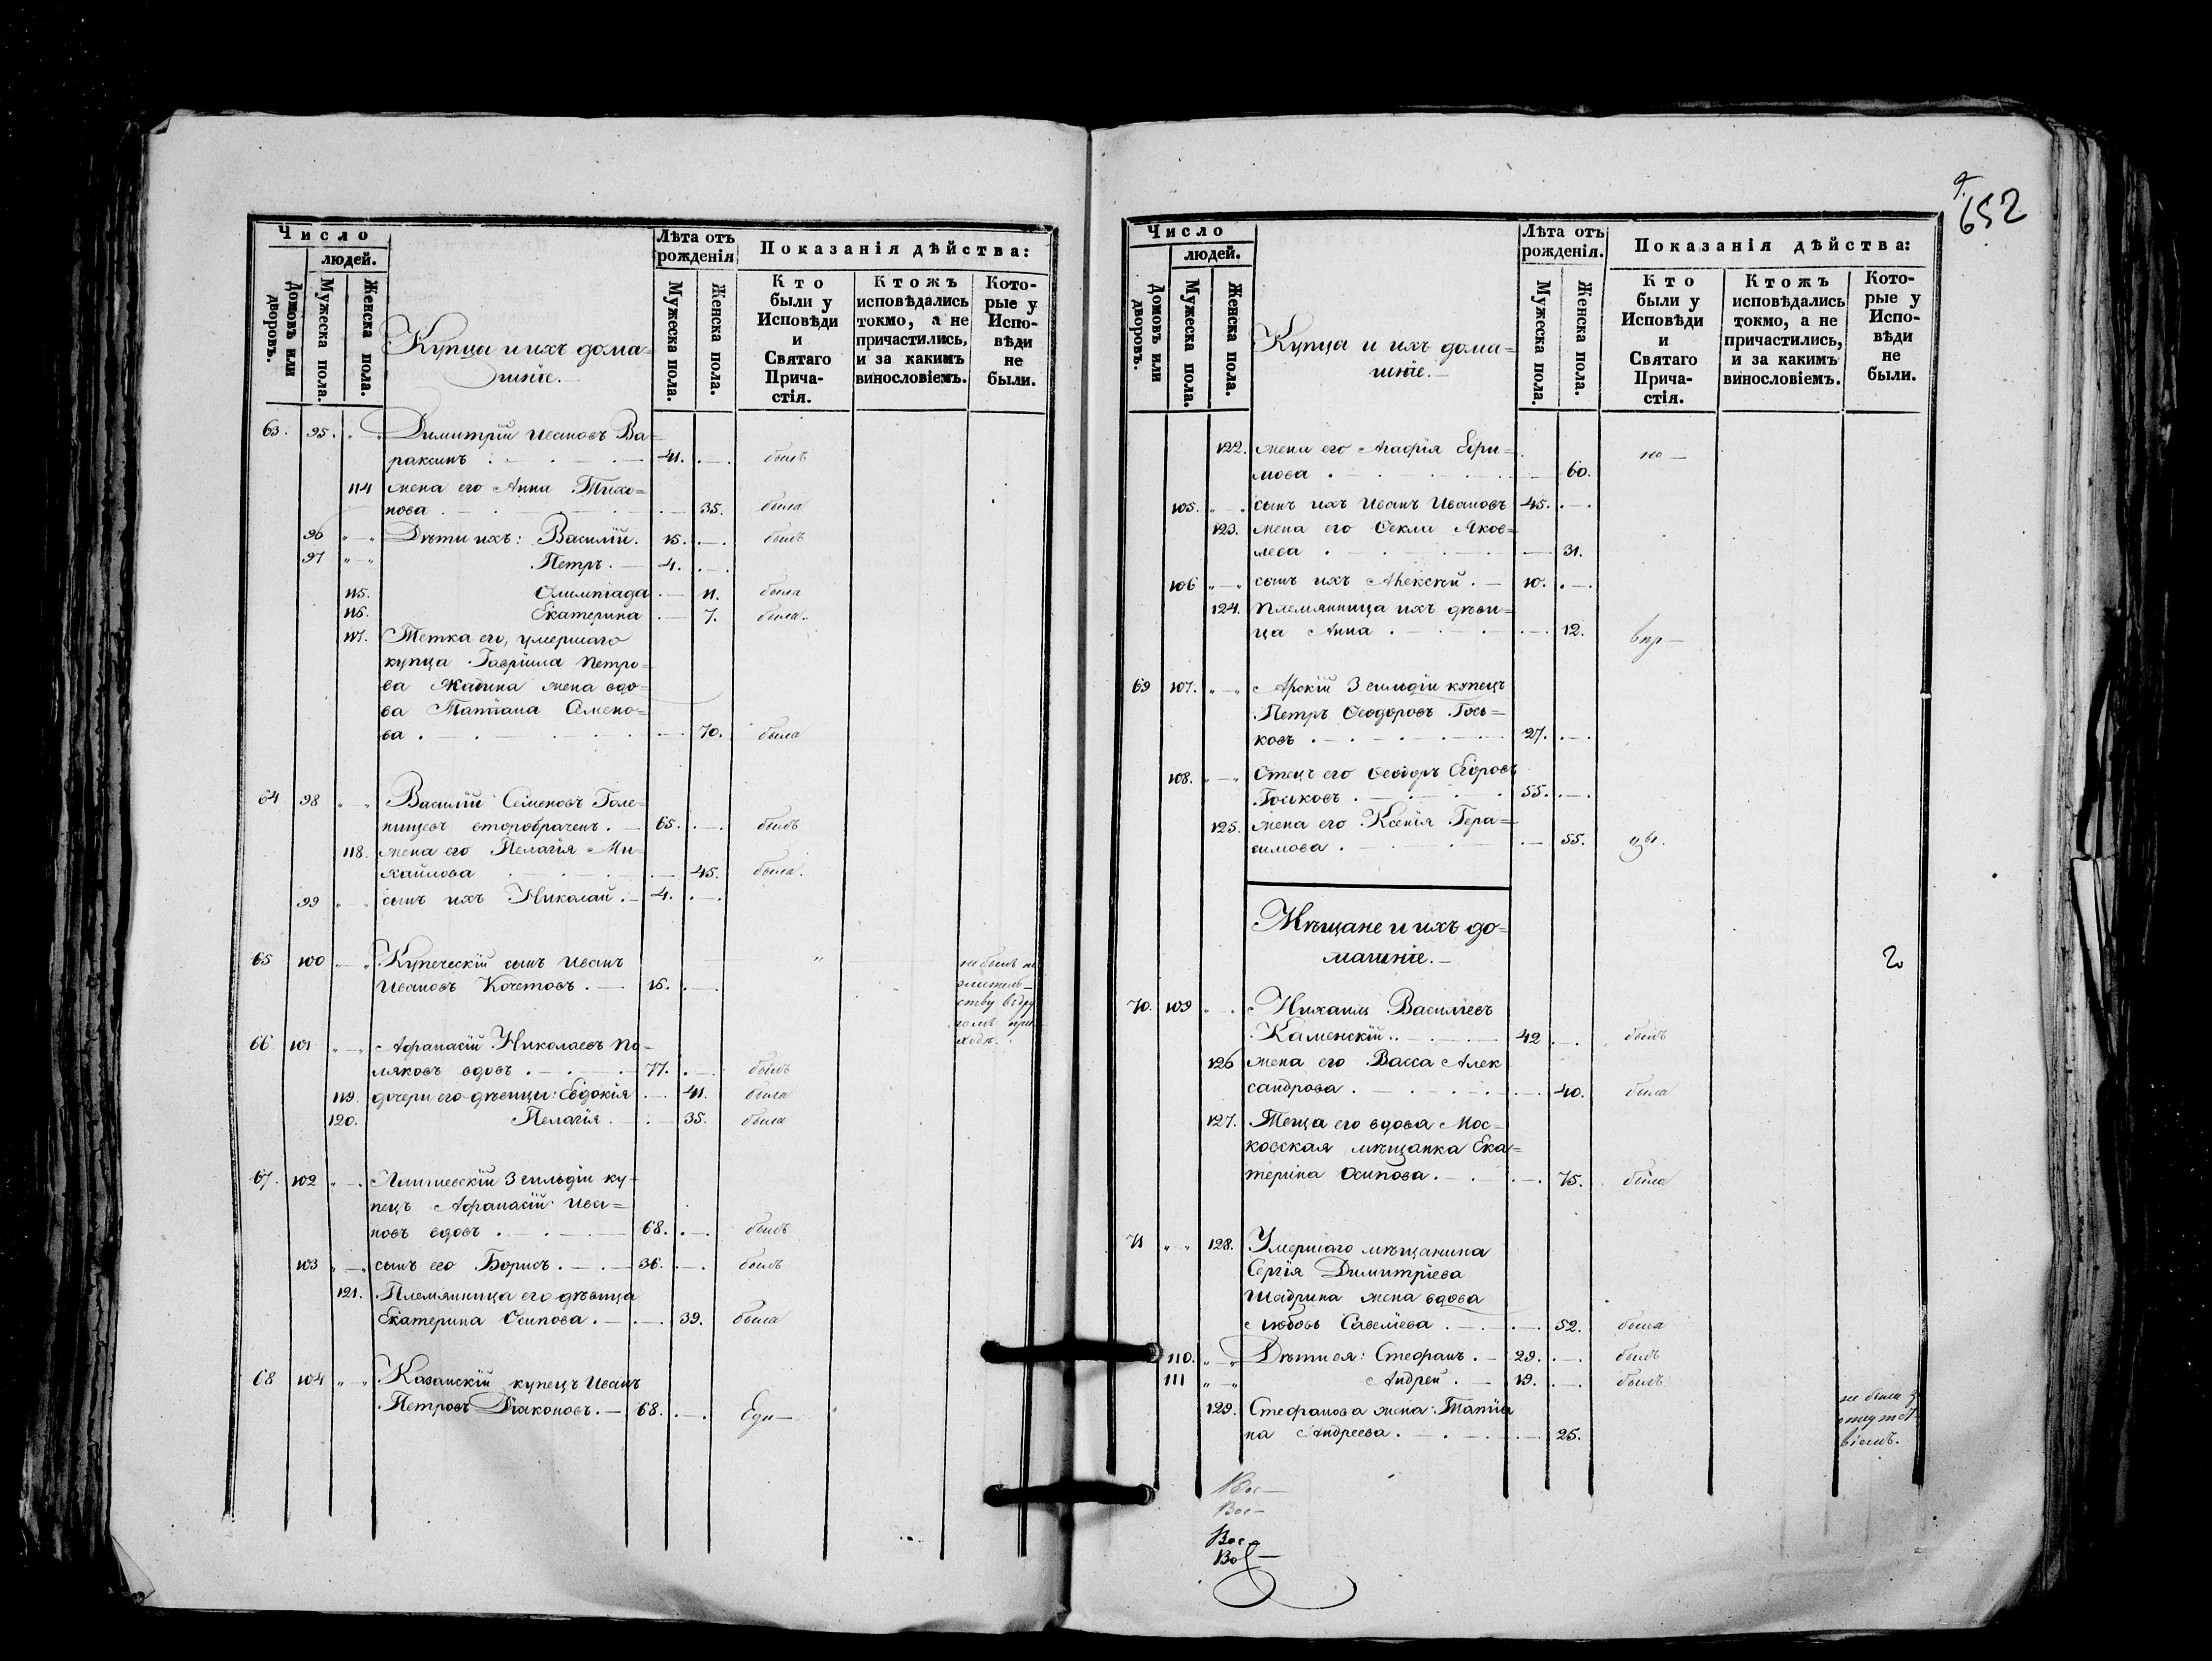 Число
людей.
Домовъ или дворовъ.
Мужеска пола.
Женска пола.
Купцы и ихъ дома=
шніе.
Лѣта отъ рожденія
Мужеска пола.
Женска пола.
Показанія дѣйства:
Кто были у Исповѣди и Святаго Прича-стія.
Ктожъ исповѣдались токмо, а не причастились, и за какимъ винословіемъ.
Кото-рые у Испо-вѣди не были.
63. 95. Димитрій Ивановъ Ва=
раксинъ 41. былъ
114 жена его Анна Тихо=
нова 35. была
96 Дѣти ихъ: Василій. 15. былъ
97 Петръ. 4.
115. Олимпіада 11. была
116. Екатерина 7. была.
117. Тетка его, умершаго
купца Гавріила Петро=
ва жена вдо=
ва Татіана Семено=
ва 70. была
64 98 Василій Семеновъ Голе=
нищевъ второбраченъ. 65. былъ
118. жена его Пелагія Ми=
хайлова 45. была.
99 сынъ ихъ Николай. 4.
65 100 Купеческій сынъ Иванъ
Ивановъ Кочетовъ. 15.
не былъ по
житель-
ству въ дру
гомъ при-
ходѣ.
66. 101 Афанасій Николаевъ По=
ляковъ вдовъ 77. былъ
119. дочери его дѣвицы: Евдокія 41. была
120. Пелагія. 35. была
67. 102 3 гильдіи ку=
пецъ Афанасій Ива=
новъ вдовъ 68. былъ
103 сынъ его Борисъ. 36. былъ
121. Племянница его дѣвица
Екатерина Осипова. 39. была
68 104 Казанскій купецъ Иванъ
Петровъ Діаконовъ. 68. Еди—
652
Число
людей.
Домовъ или дворовъ.
Мужеска пола.
Женска пола.
Купцы и ихъ дома=
шніе.
Лѣта отъ рожденія.
Мужеска пола.
Женска пола.
Показанія дѣйства:
Кто были у Исповѣди и Святаго Прича-стія.
Ктожъ исповѣдались токмо, а не причастились, и за какимъ винословіемъ.
Кото-рые у Испо-вѣди не были.
122. жена его Агафія Ефи=
мова 60. но—
105. сынъ ихъ Иванъ Ивановъ 45.
123. жена его Ѳекла Яков=
лева 31.
106 сынъ ихъ Алексѣй. 10.
124. Племянница ихъ дѣви=
ца Анна 12. вѣр—
69 107. Арскій 3 гильдіи купецъ
Петръ Ѳеодоровъ Гось=
ковъ 27.
108. Отецъ его Ѳеодоръ Егоровъ
Госьковъ 55.
125. жена его Ксенія Гера=
симова 55. цы.
Мѣщане и ихъ до=
машніе.
70. 109 Михаилъ Василіевъ
Каменскій 42 былъ
126 жена его Васса Алек
сандрова 40. была
127. Теща его вдова Мос=
ковская мѣщанка Ека=
терина Осипова. 75. была
71 128. Умершаго мѣщанина
Сергія Димитріева
Шадрина жена вдова
Любовь Савеліева 52. была
110. Дѣти ея: Стефанъ. 29. былъ
111 Андрей. 19. былъ
129. Стефанова жена: Татіа
на Андреева. 25.
не была за
отсутст
віемъ.
Вос—
Вос—
Вос—
Вос—